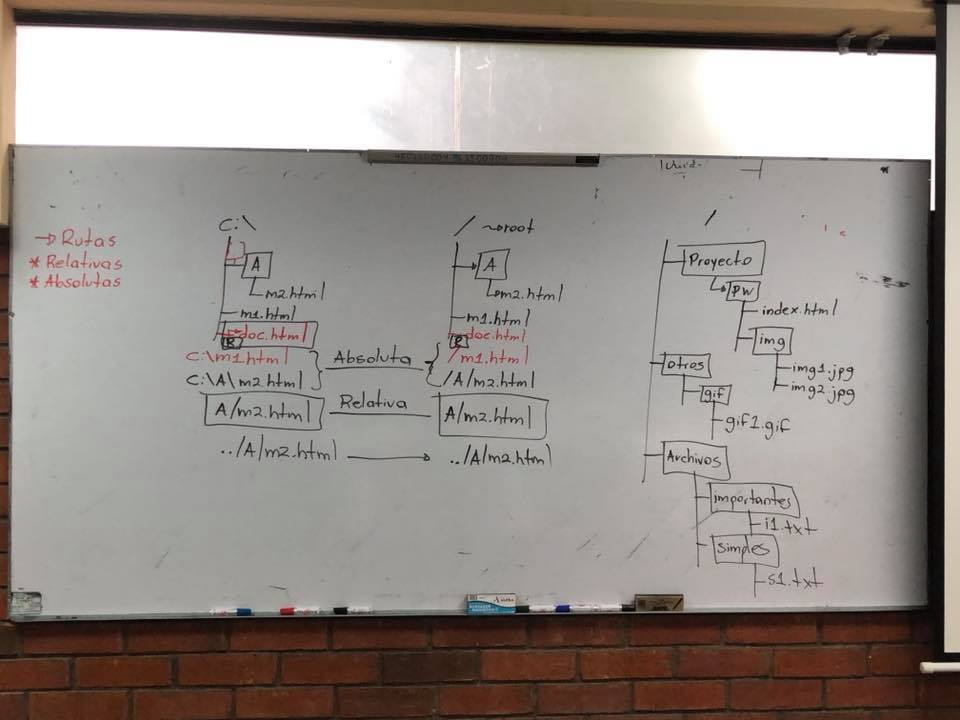 → Rutas
* Relativas
* Absolutas
C:\
A
m2.html
m1.html
doc.html
R
C:\m1.html
C:\A\m2.html
A/m2.html
../A/m2.html
Absoluta
Relativa
/ ~root
A
m2.html
m1.html
doc.html
R
/m1.html
/A/m2.html
A/m2.html
../A/m2.html
/
Proyecto
PW
index.html
img
img1.jpg
img2.jpg
otros
gif
gif1.gif
Archivos
importantes
i1.txt
simples
s1.txt